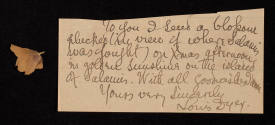 To you I send a blossom
plucked in view of where Salamis
was fought, on Xmas afternoon
in golden sunshine on the island
of Salamis. With all good
Yours very sincerely
Louis Dyer.